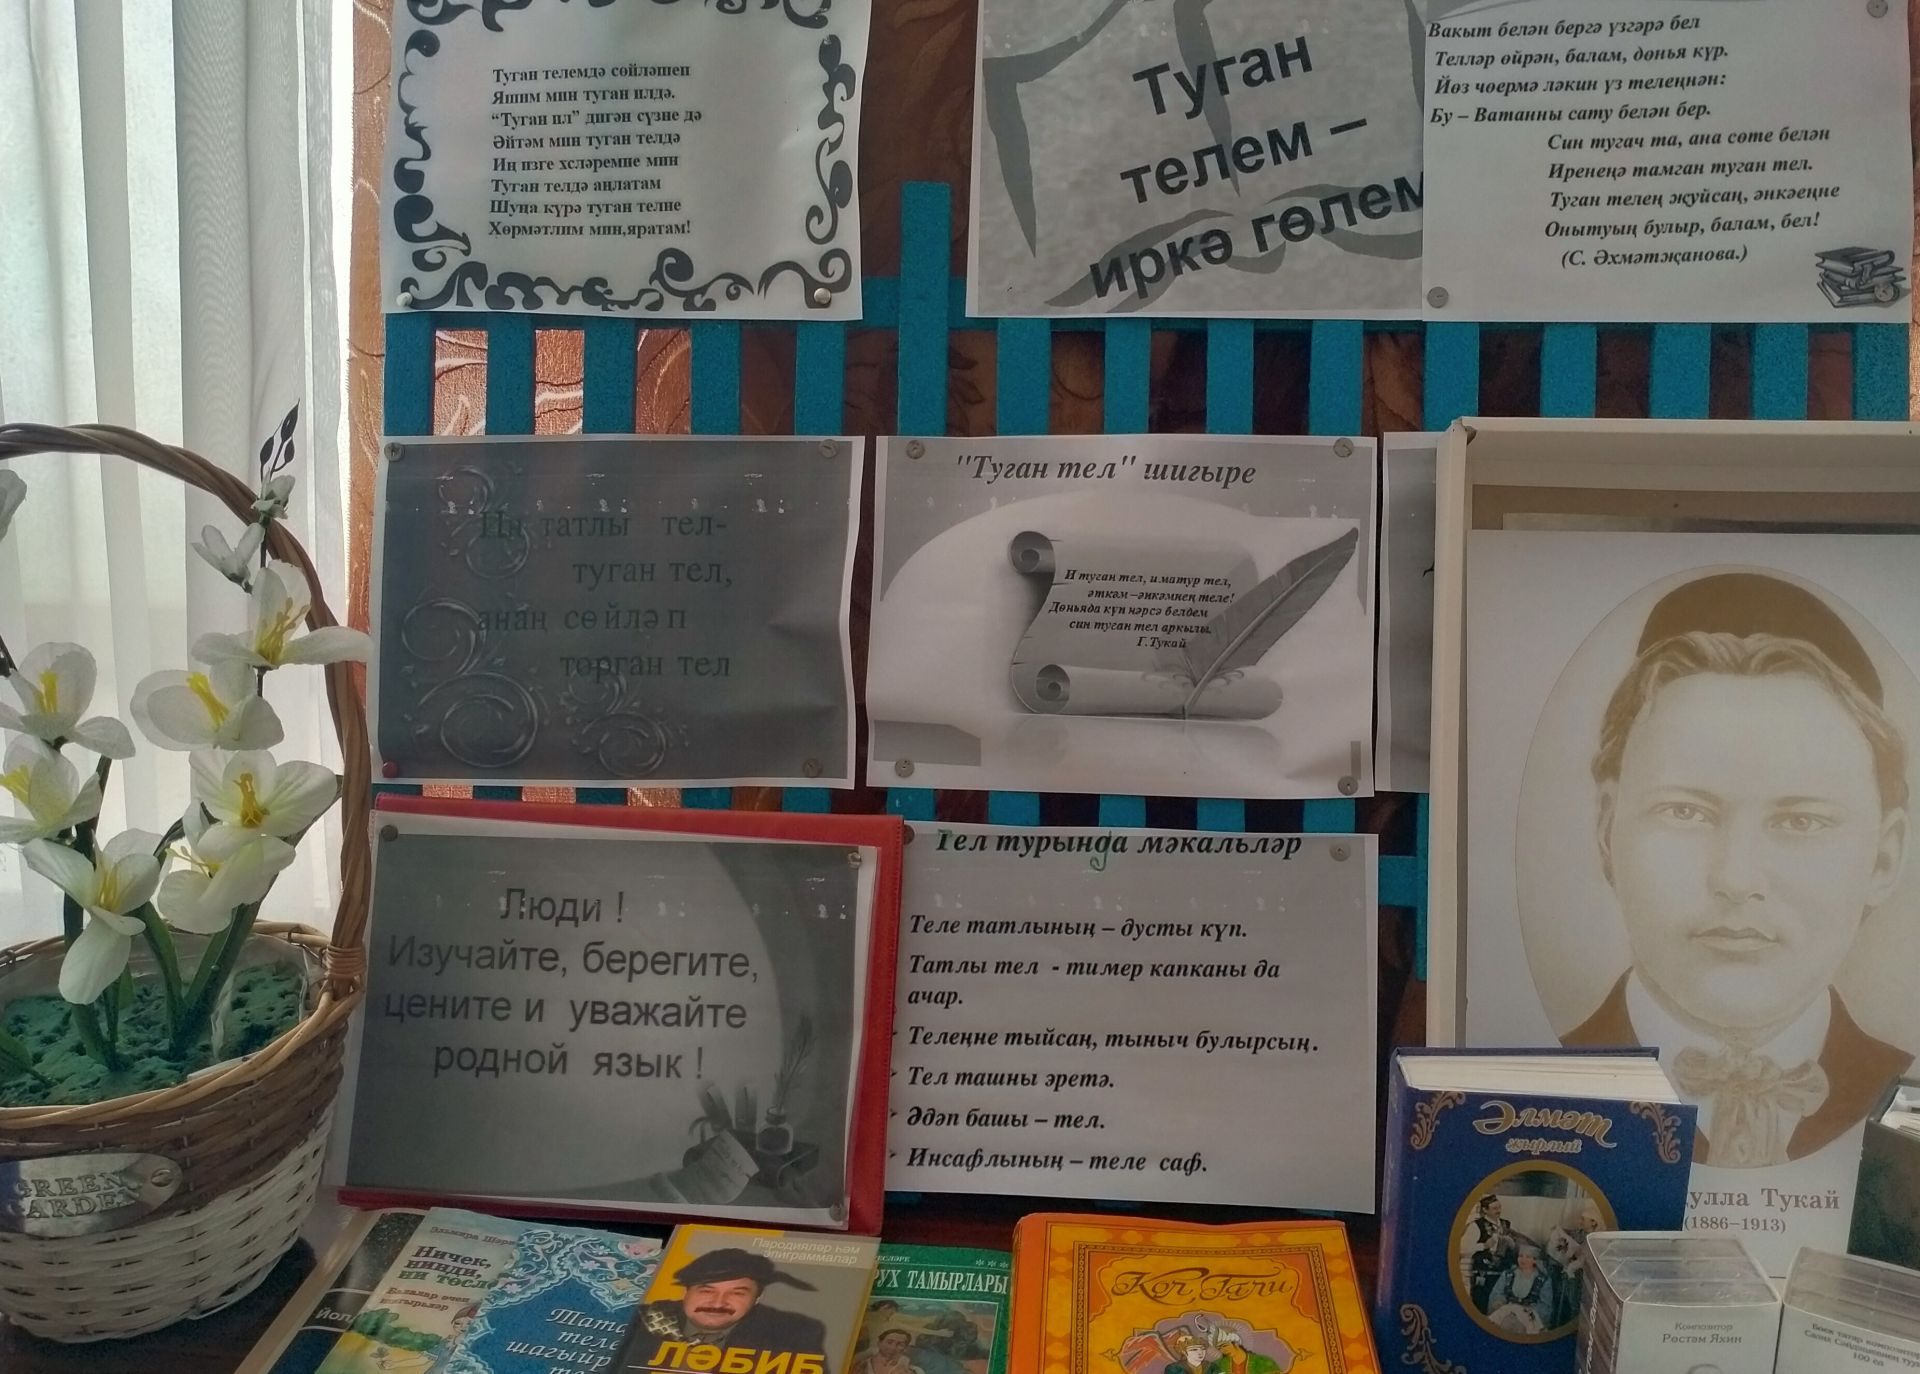 Туган телемдә сөйләшеп
Яшим мин туган илдә.
“Туган ил” дигән сүзне дә
Әйтәм мин туган телдә
Иң изге хсләремне мин
Туган телдә аңлатам
Шуңа күрә туган телне
Хөрмәтлим мин,яратам!
Туган
телем –
иркә гөлем
Вакыт белән бергә үзгәрә бел
Телләр өйрән, балам, дөнья күр.
Йөз чөермә ләкин үз телеңнән:
Бу – Ватанны сату белән бер.
Син тугач та, ана сөте белән
Иренеңә тамган туган тел.
Туган телең җуйсаң, әнкәеңне
Онытуың булыр, балам, бел!
(С. Әхмәтҗанова.)
Иң татлы тел-
туган тел,
анаң сөйләп
торган тел
"Туган тел" шигыре
И туган тел, и матур тел,
әткәм –әнкәмнең теле!
Дөньяда күп нәрсә белдем
син туган тел аркылы.
Г.Тукай
Люди !
Изучайте, берегите,
цените и уважайте
родной язык !
Тел турында мәкальләр
Теле татлының – дусты күп.
Татлы тел - тимер капканы да
ачар.
Телеңне тыйсаң, тыныч булырсың.
Тел ташны эретә.
Әдәп башы – тел.
Инсафлының – теле саф.
GREEN
GARDEN
Эльмира
Ничек,
нинди,
ни төсле
Балалар өчен
шигырьләр
теле
Пародияләр һәм
эпиграммалар
ЛӘБИБ
РУХ ТАМЫРЛАРЫ
Кол Гали
Әлмәт
җырлый
улла Тукай
(1886–1913)
Композитор
Рөстәм Яхин
Бөек татар композиторы
100 ел